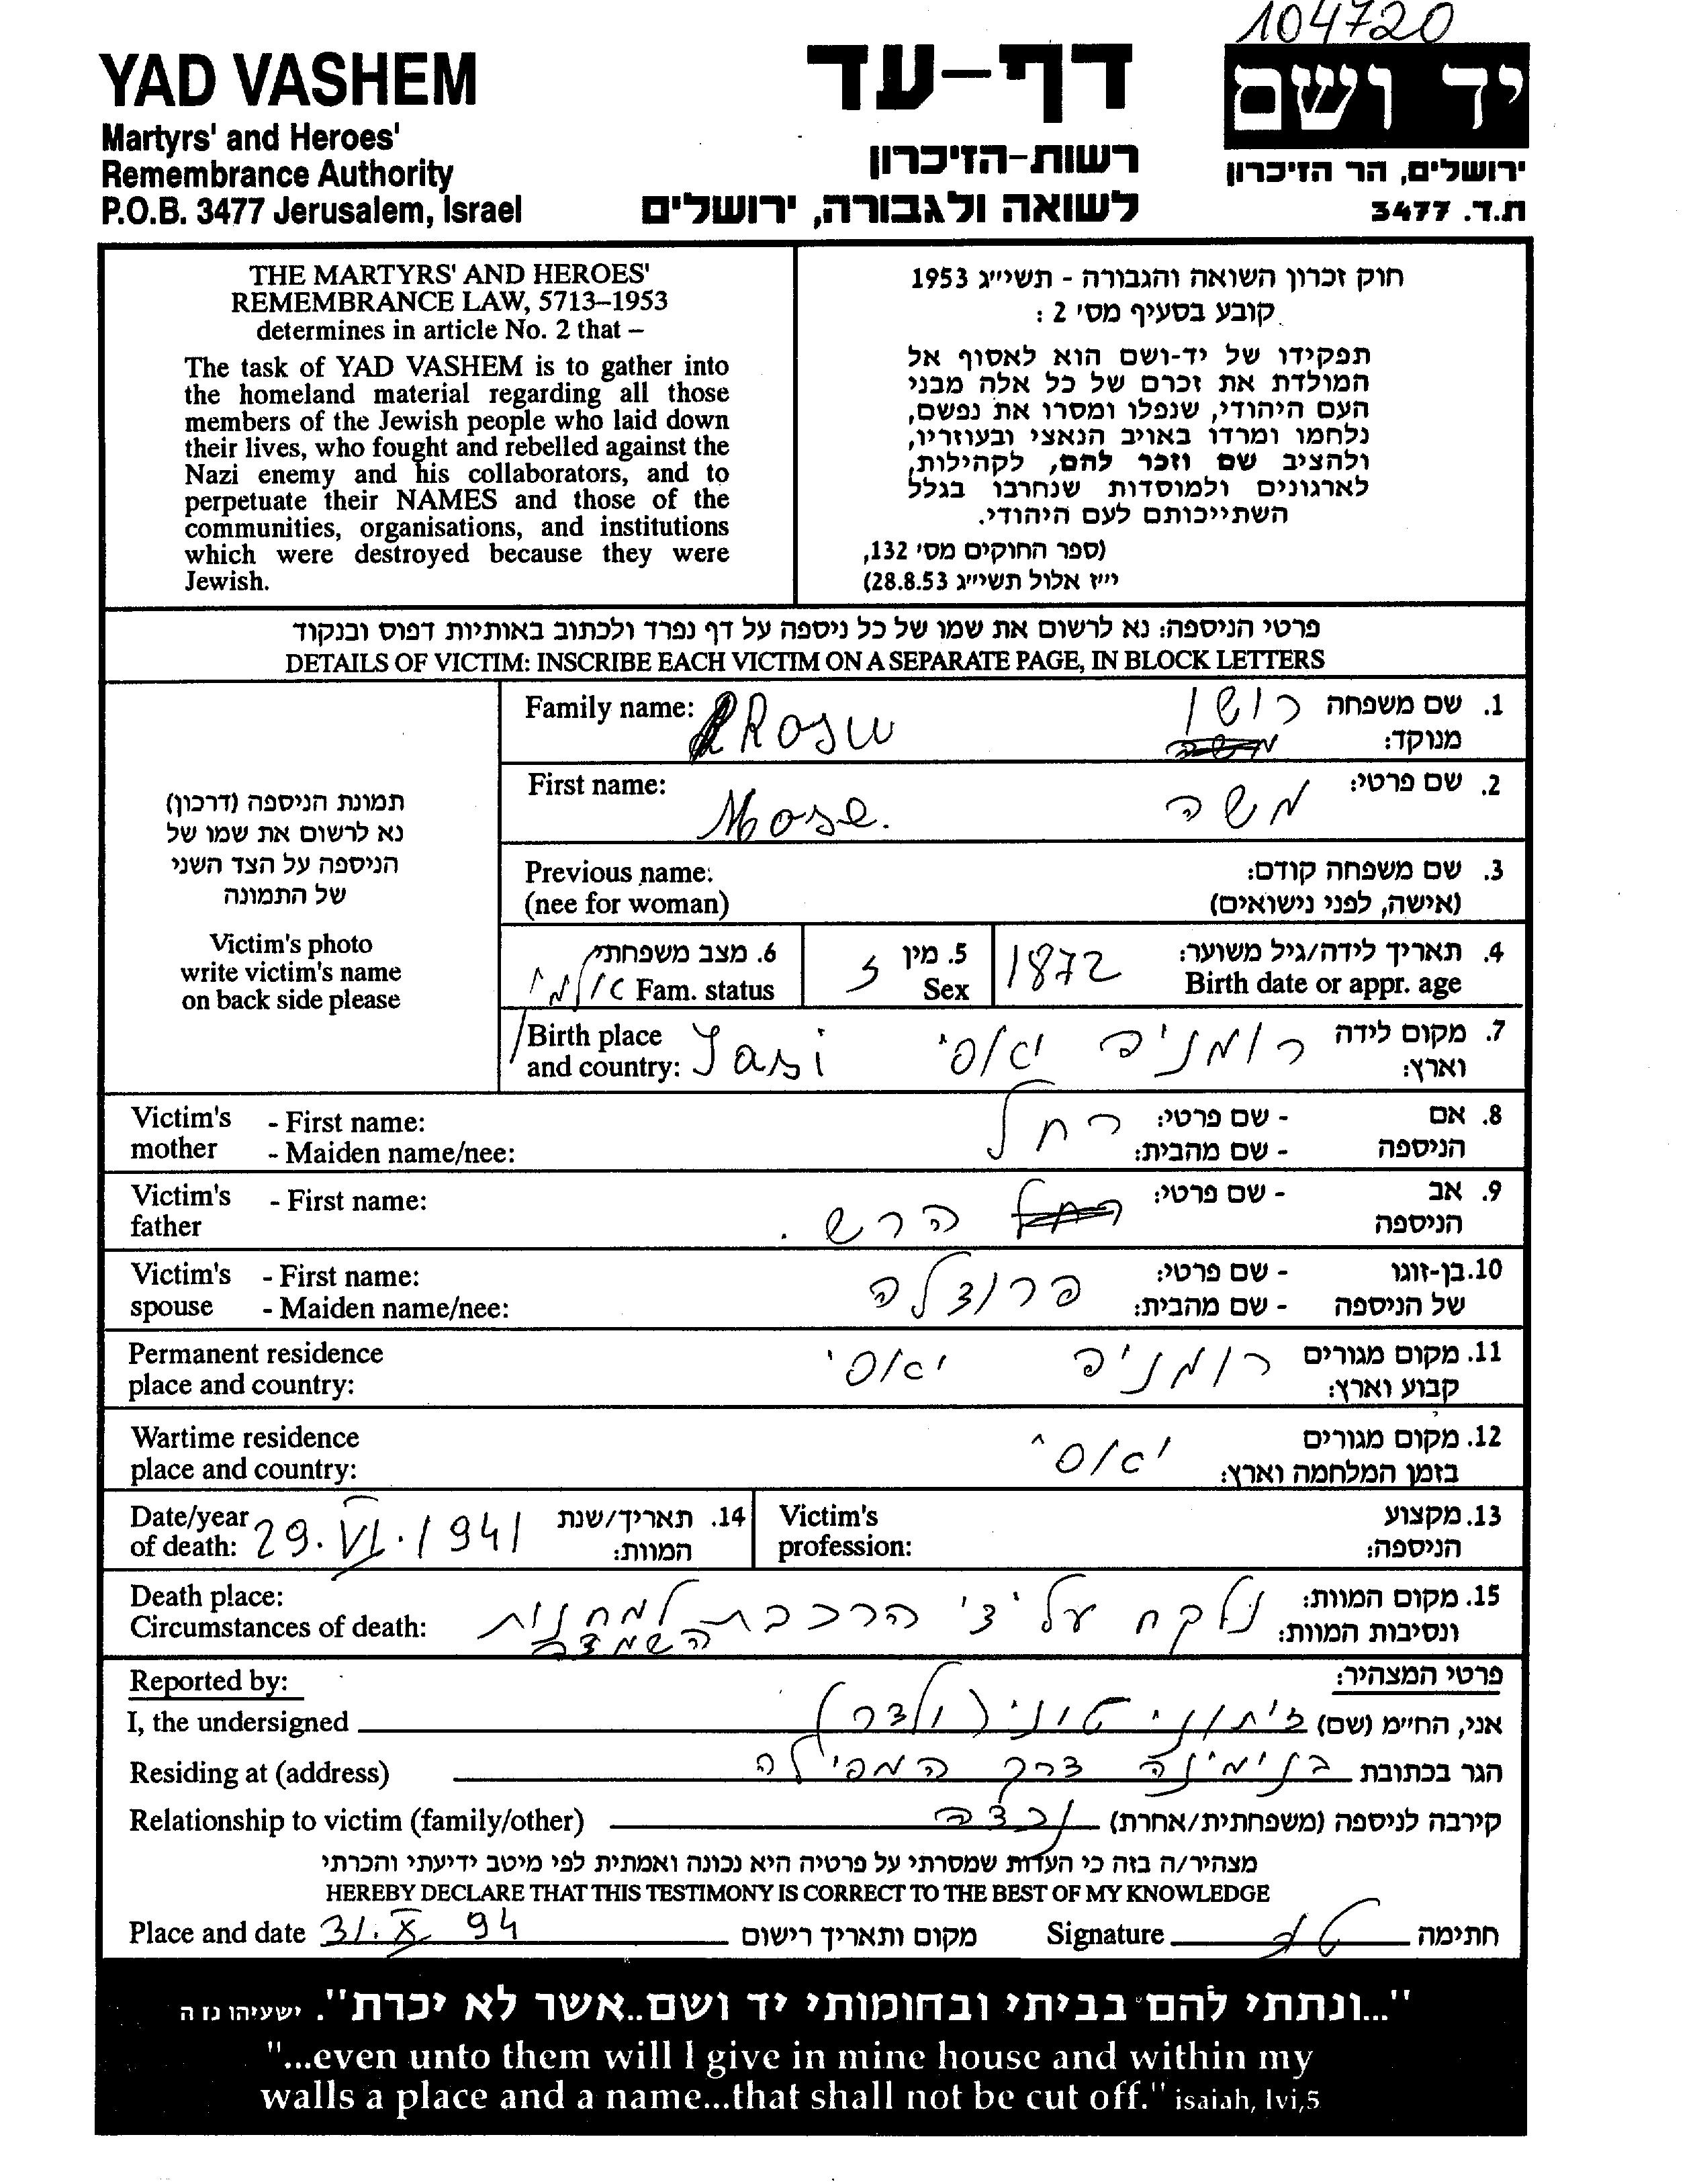 104720
YAD VASHEM
Martyrs' and Heroes'
Remembrance Authority
P.O.B. 3477 Jerusalem, Israel
דף-עד
רשות-הזיכרון
לשואה ולגבורה, ירושלים
יד ושם
ירושלים, הר הזיכרון
ת.ד. 3477
THE MARTYRS' AND HEROES'
REMEMBRANCE LAW, 5713–1953
determines in article No. 2 that –
The task of YAD VASHEM is to gather into
the homeland material regarding all those
members of the Jewish people who laid down
their lives, who fought and rebelled against the
Nazi enemy and his collaborators, and to
perpetuate their NAMES and those of the
communities, organisations, and institutions
which were destroyed because they were
Jewish.
חוק זכרון השואה והגבורה - תשי״ג 1953
קובע בסעיף מס׳ 2 :
תפקידו של יד-ושם הוא לאסוף אל
המולדת את זכרם של כל אלה מבני
העם היהודי, שנפלו ומסרו את נפשם,
נלחמו ומרדו באויב הנאצי ובעוזריו,
ולהציב שם וזכר להם, לקהילות,
לארגונים ולמוסדות שנחרבו בגלל
השתייכותם לעם היהודי.
(ספר החוקים מס׳ 132,
י״ז אלול תשי״ג 28.8.53)
פרטי הניספה: נא לרשום את שמו של כל ניספה על דף נפרד ולכתוב באותיות דפוס ובנקוד
DETAILS OF VICTIM: INSCRIBE EACH VICTIM ON A SEPARATE PAGE, IN BLOCK LETTERS
תמונת הניספה (דרכון)
נא לרשום את שמו של
הניספה על הצד השני
של התמונה
Victim's photo
write victim's name
on back side please
Family name: Rosu רושו 1. שם משפחה
מנוקד:
First name: Mose. משה 2. שם פרטי:
Previous name:
(nee for woman)
3. שם משפחה קודם:
(אישה, לפני נישואים)
6. מצב משפחתי
Fam. status
5. מין ז
Sex
1872 4. תאריך לידה/גיל משוער:
Birth date or appr. age
Birth place
and country: Iasi רומניה יאסי 7. מקום לידה
וארץ:
Victim's mother - First name: רחל - שם פרטי: 8. אם
- Maiden name/nee: - שם מהבית: הניספה
Victim's father - First name: הרש. - שם פרטי: 9. אב
הניספה
Victim's spouse - First name: פרוצלה - שם פרטי: 10. בן-זוגו
- Maiden name/nee: - שם מהבית: של הניספה
Permanent residence
place and country: רומניה יאסי 11. מקום מגורים
קבוע וארץ:
Wartime residence
place and country: יאסי 12. מקום מגורים
בזמן המלחמה וארץ:
Date/year
of death: 29.VI.1941 14. תאריך/שנת
המוות:
Victim's
profession:
13. מקצוע
הניספה:
Death place:
Circumstances of death:
15. מקום המוות:
ונסיבות המוות:
נלקח על ידי הרכבת למחנות
השמדה
Reported by: פרטי המצהיר:
I, the undersigned אני, החי״מ (שם)
Residing at (address) בנימינה דרך המפילה הגר בכתובת
Relationship to victim (family/other) נכדה קירבה לניספה (משפחתית/אחרת)
מצהיר/ה בזה כי העדות שמסרתי על פרטיה היא נכונה ואמתית לפי מיטב ידיעתי והכרתי
HEREBY DECLARE THAT THIS TESTIMONY IS CORRECT TO THE BEST OF MY KNOWLEDGE
Place and date 31.X 94 מקום ותאריך רישום Signature חתימה
"...ונתתי להם בביתי ובחומותי יד ושם..אשר לא יכרת". ישעיהו נז ה
"...even unto them will I give in mine house and within my
walls a place and a name...that shall not be cut off." isaiah, lvi,5